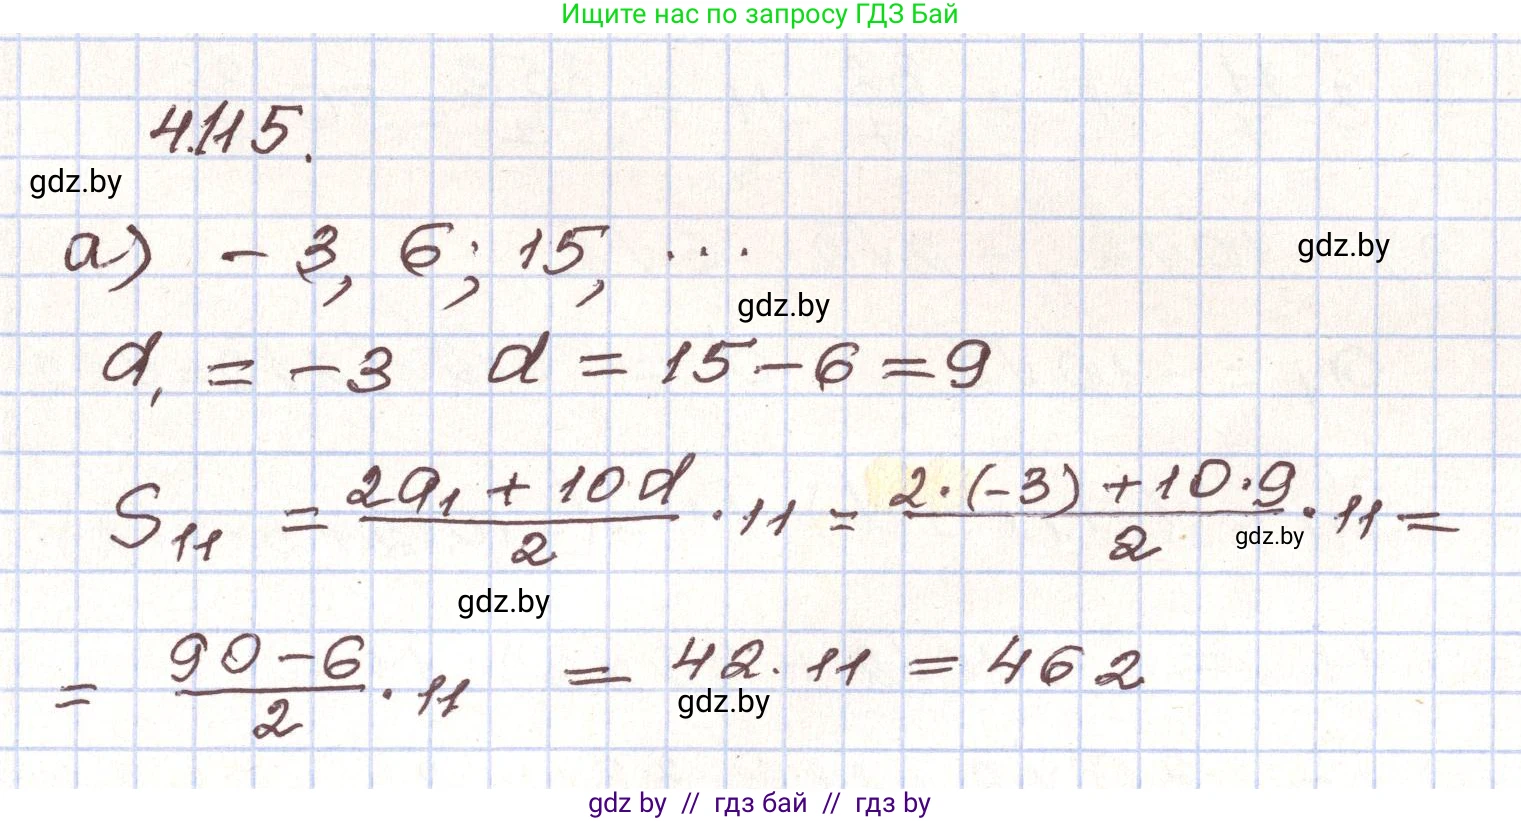 Ищите нас по запросу ГДЗ Бай
4.115.
gdz.by
а) - 3, 6; 15, ...
gdz.by
gdz.by
d₁ = -3 d = 15 - 6 = 9
S₁₁ = (2a₁ + 10d)/2 · 11 = (2·(-3) + 10·9)/2 · 11 =
gdz.by
gdz.by
= (90 - 6)/2 · 11 = 42 · 11 = 462
gdz.by
gdz by // гдз бай // гдз by